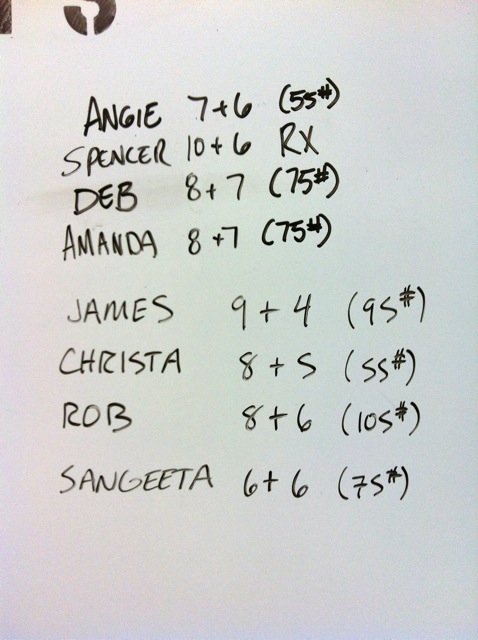 ANGIE 7+6 (55#)
SPENCER 10+6 RX
DEB 8+7 (75#)
AMANDA 8+7 (75#)
JAMES 9+4 (95#)
CHRISTA 8+5 (55#)
ROB 8+6 (105#)
SANGEETA 6+6 (75#)